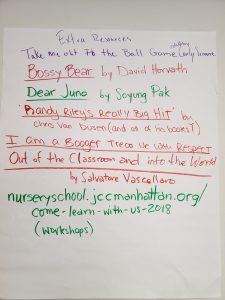 Extra Resources
Take me out to the Ball Game
Bossy Bear by David Horvath
Dear Juno by Soyung Pak
"Randy Riley's Really Big Hit" by
Chris Van Dusen (and all of his books!)
I am a Booger Treat Me With Respect
Out of the Classroom and into the World
by Salvatore Vascellaro
nurseryschool.jccmanhattan.org/
come-learn-with-us-2018
(workshops)